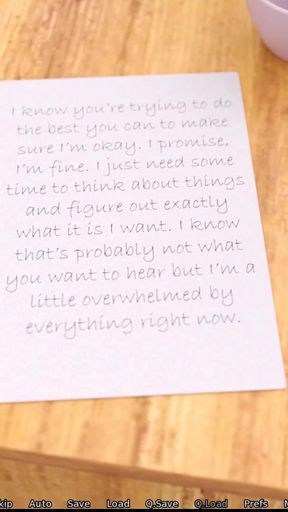 I know you're trying to do
the best you can to make
sure I'm okay. I promise,
I'm fine. I just need some
time to think about things
and figure out exactly
what it is I want. I know
that's probably not what
you want to hear but I'm a
little overwhelmed by
everything right now.
kip Auto Save Load Q.Save Q.Load Prefs